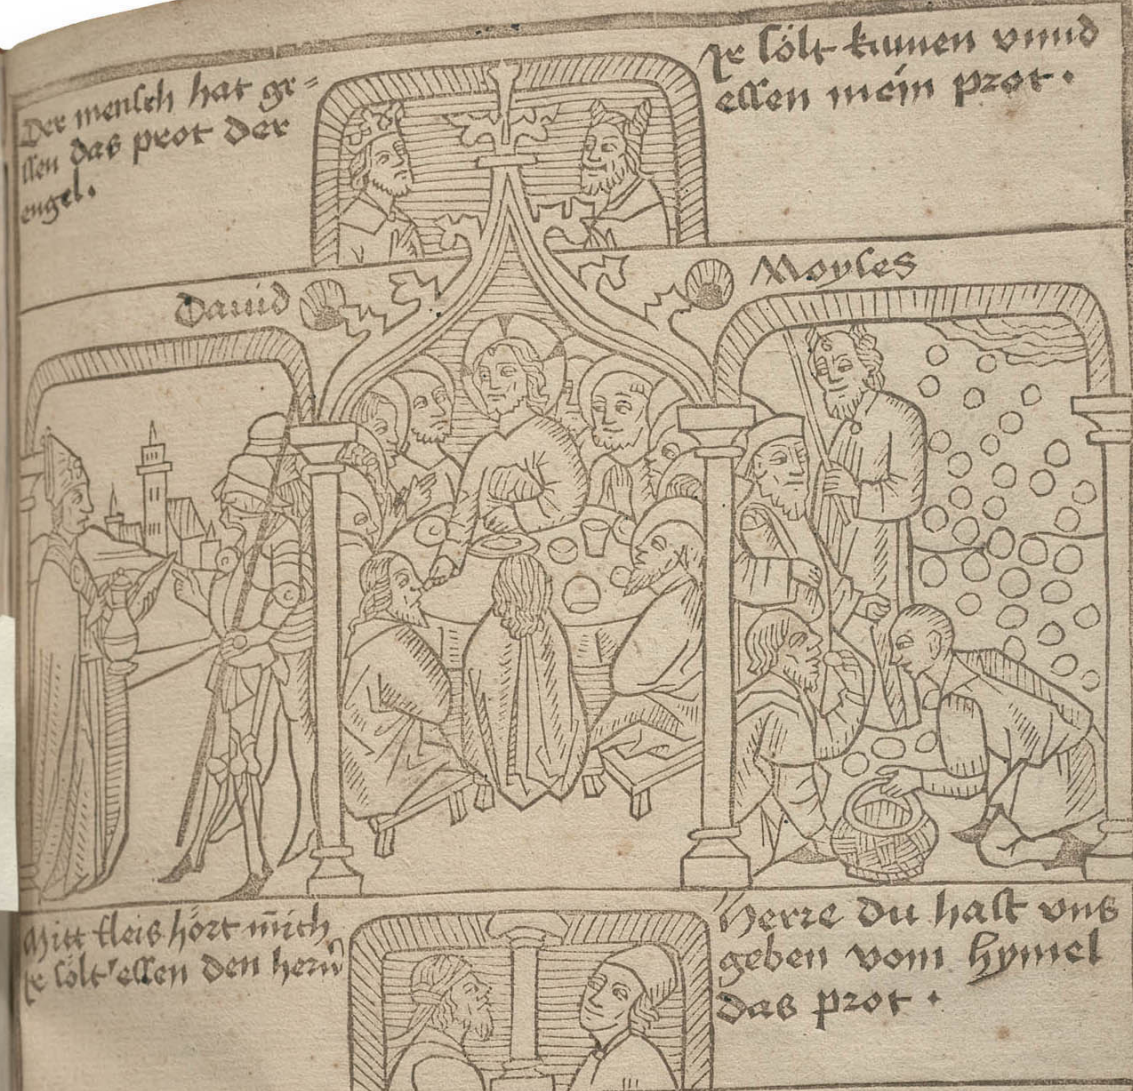 Der mensch hat ge=
ssen das prot der
engel.
Ir sölt kumen vnnd
essen mein prot.
Dauid
Moyses
Mitt fleis hört mich
Ir sölt essen den herñ
Herre du hast vns
geben vom hymel
das prot.